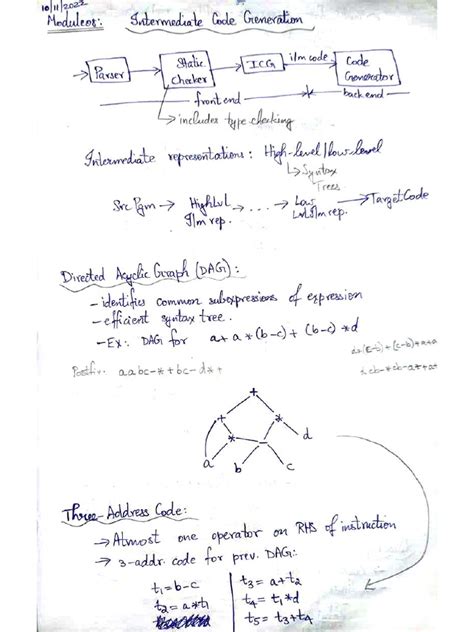 10/11/2022
Module 05: Intermediate Code Generation
Parser
Static Checker
ICG
i/m code
Code Generator
front end
back end
includes type checking
Intermediate representations: High-level/low-level
Syntax Trees
Src Pgm → High Lvl I/m rep. → ... → Low Lvl I/m rep. → Target Code
Directed Acyclic Graph (DAG):
- identifies common subexpressions of expression
- efficient syntax tree.
- Ex: DAG for a + a * (b-c) + (b-c) * d
Postfix: a a b c - * + b c - d * +
+
+ *
* - d
a b c
Three-Address Code:
→ Atmost one operator on RHS of instruction
→ 3-addr. code for prev. DAG:
t₁ = b-c
t₂ = a*t₁
t₃ = a+t₂
t₄ = t₁*d
t₅ = t₃+t₄